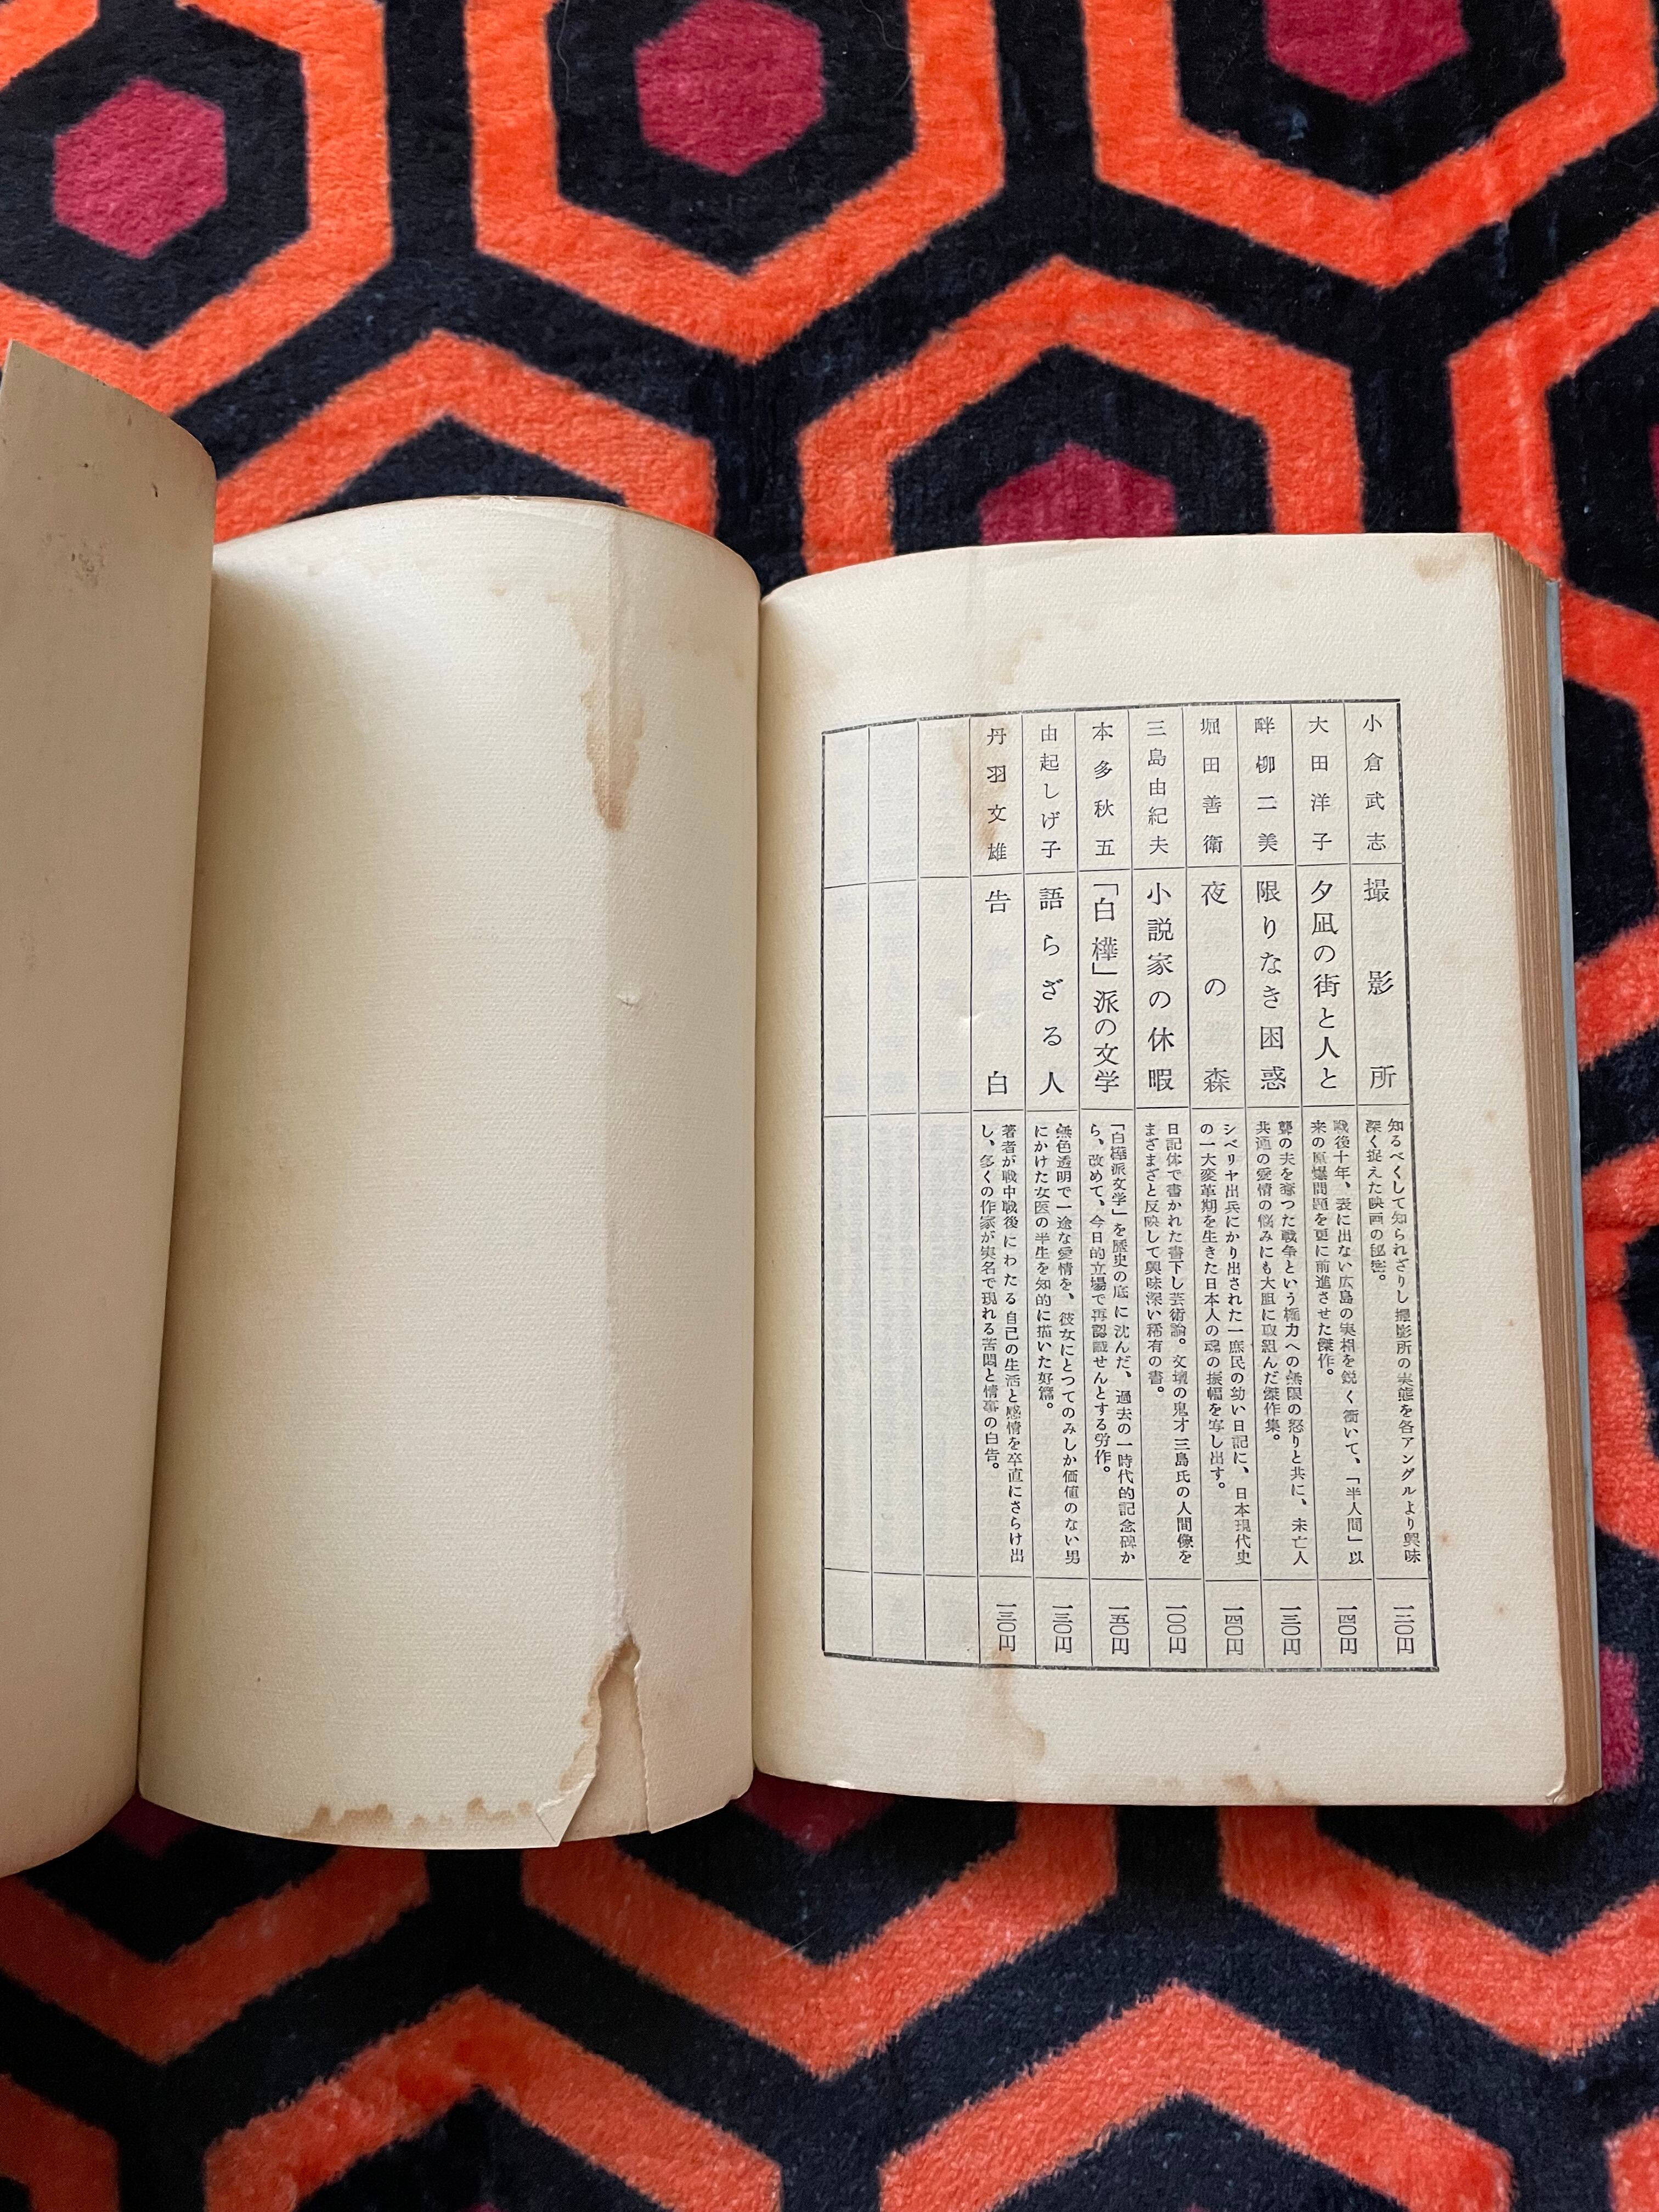 小倉武志
撮影所
知るべくして知られざりし撮影所の実態を各アングルより興味
深く捉えた映画の秘密。
一二〇円
大田洋子
夕凪の街と人と
戦後十年、表に出ない広島の実相を鋭く衝いて、「半人間」以
来の原爆問題を更に前進させた傑作。
一四〇円
畔柳二美
限りなき困惑
聾の夫を奪つた戦争という権力への無限の怒りと共に、未亡人
共通の愛情の悩みにも大胆に取組んだ傑作集。
一三〇円
堀田善衛
夜の森
シベリヤ出兵にかり出された一庶民の幼い日記に、日本現代史
の一大変革期を生きた日本人の魂の振幅を写し出す。
一四〇円
三島由紀夫
小説家の休暇
日記体で書かれた書下し芸術論。文壇の鬼才三島氏の人間像を
まざまざと反映して興味深い稀有の書。
一〇〇円
本多秋五
「白樺」派の文学
「白樺派文学」を歴史の底に沈んだ、過去の一時代的記念碑か
ら、改めて、今日的立場で再認識せんとする労作。
一五〇円
由起しげ子
語らざる人
無色透明で一途な愛情を、彼女にとつてのみしか価値のない男
にかけた女医の半生を知的に描いた好篇。
一三〇円
丹羽文雄
告白
著者が戦中戦後にわたる自己の生活と感情を卒直にさらけ出
し、多くの作家が実名で現れる苦悶と情事の白告。
一三〇円